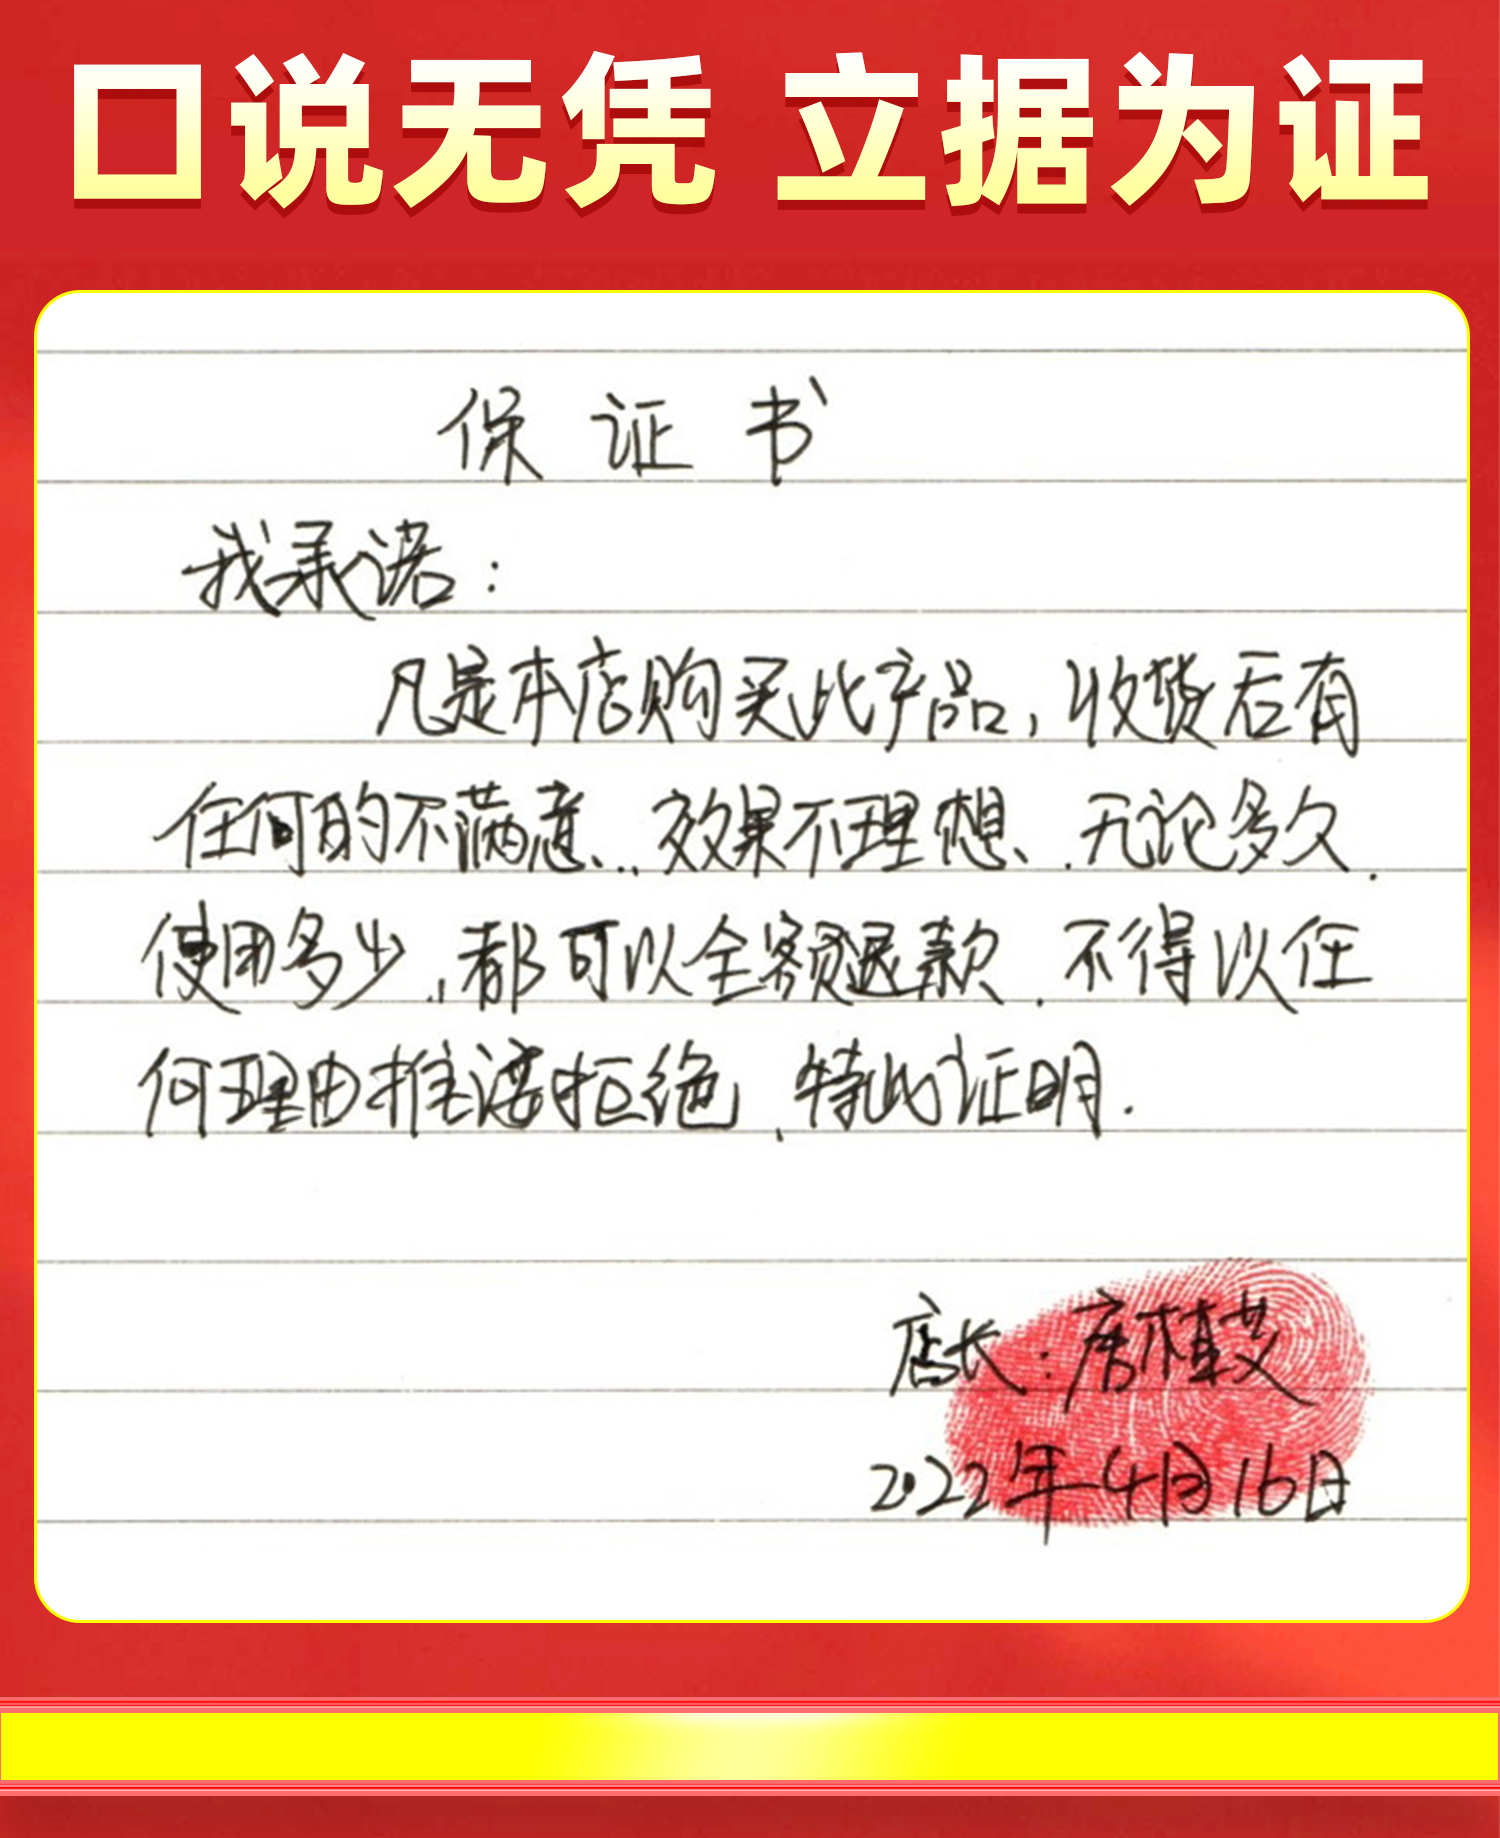 口说无凭 立据为证
保证书
我承诺：
凡是本店购买此产品，收货后有
任何的不满意、效果不理想、无论多久.
使用多少,都可以全额退款.不得以任
何理由推诿拒绝、特此证明.
店长：唐植艾
2022年4月16日